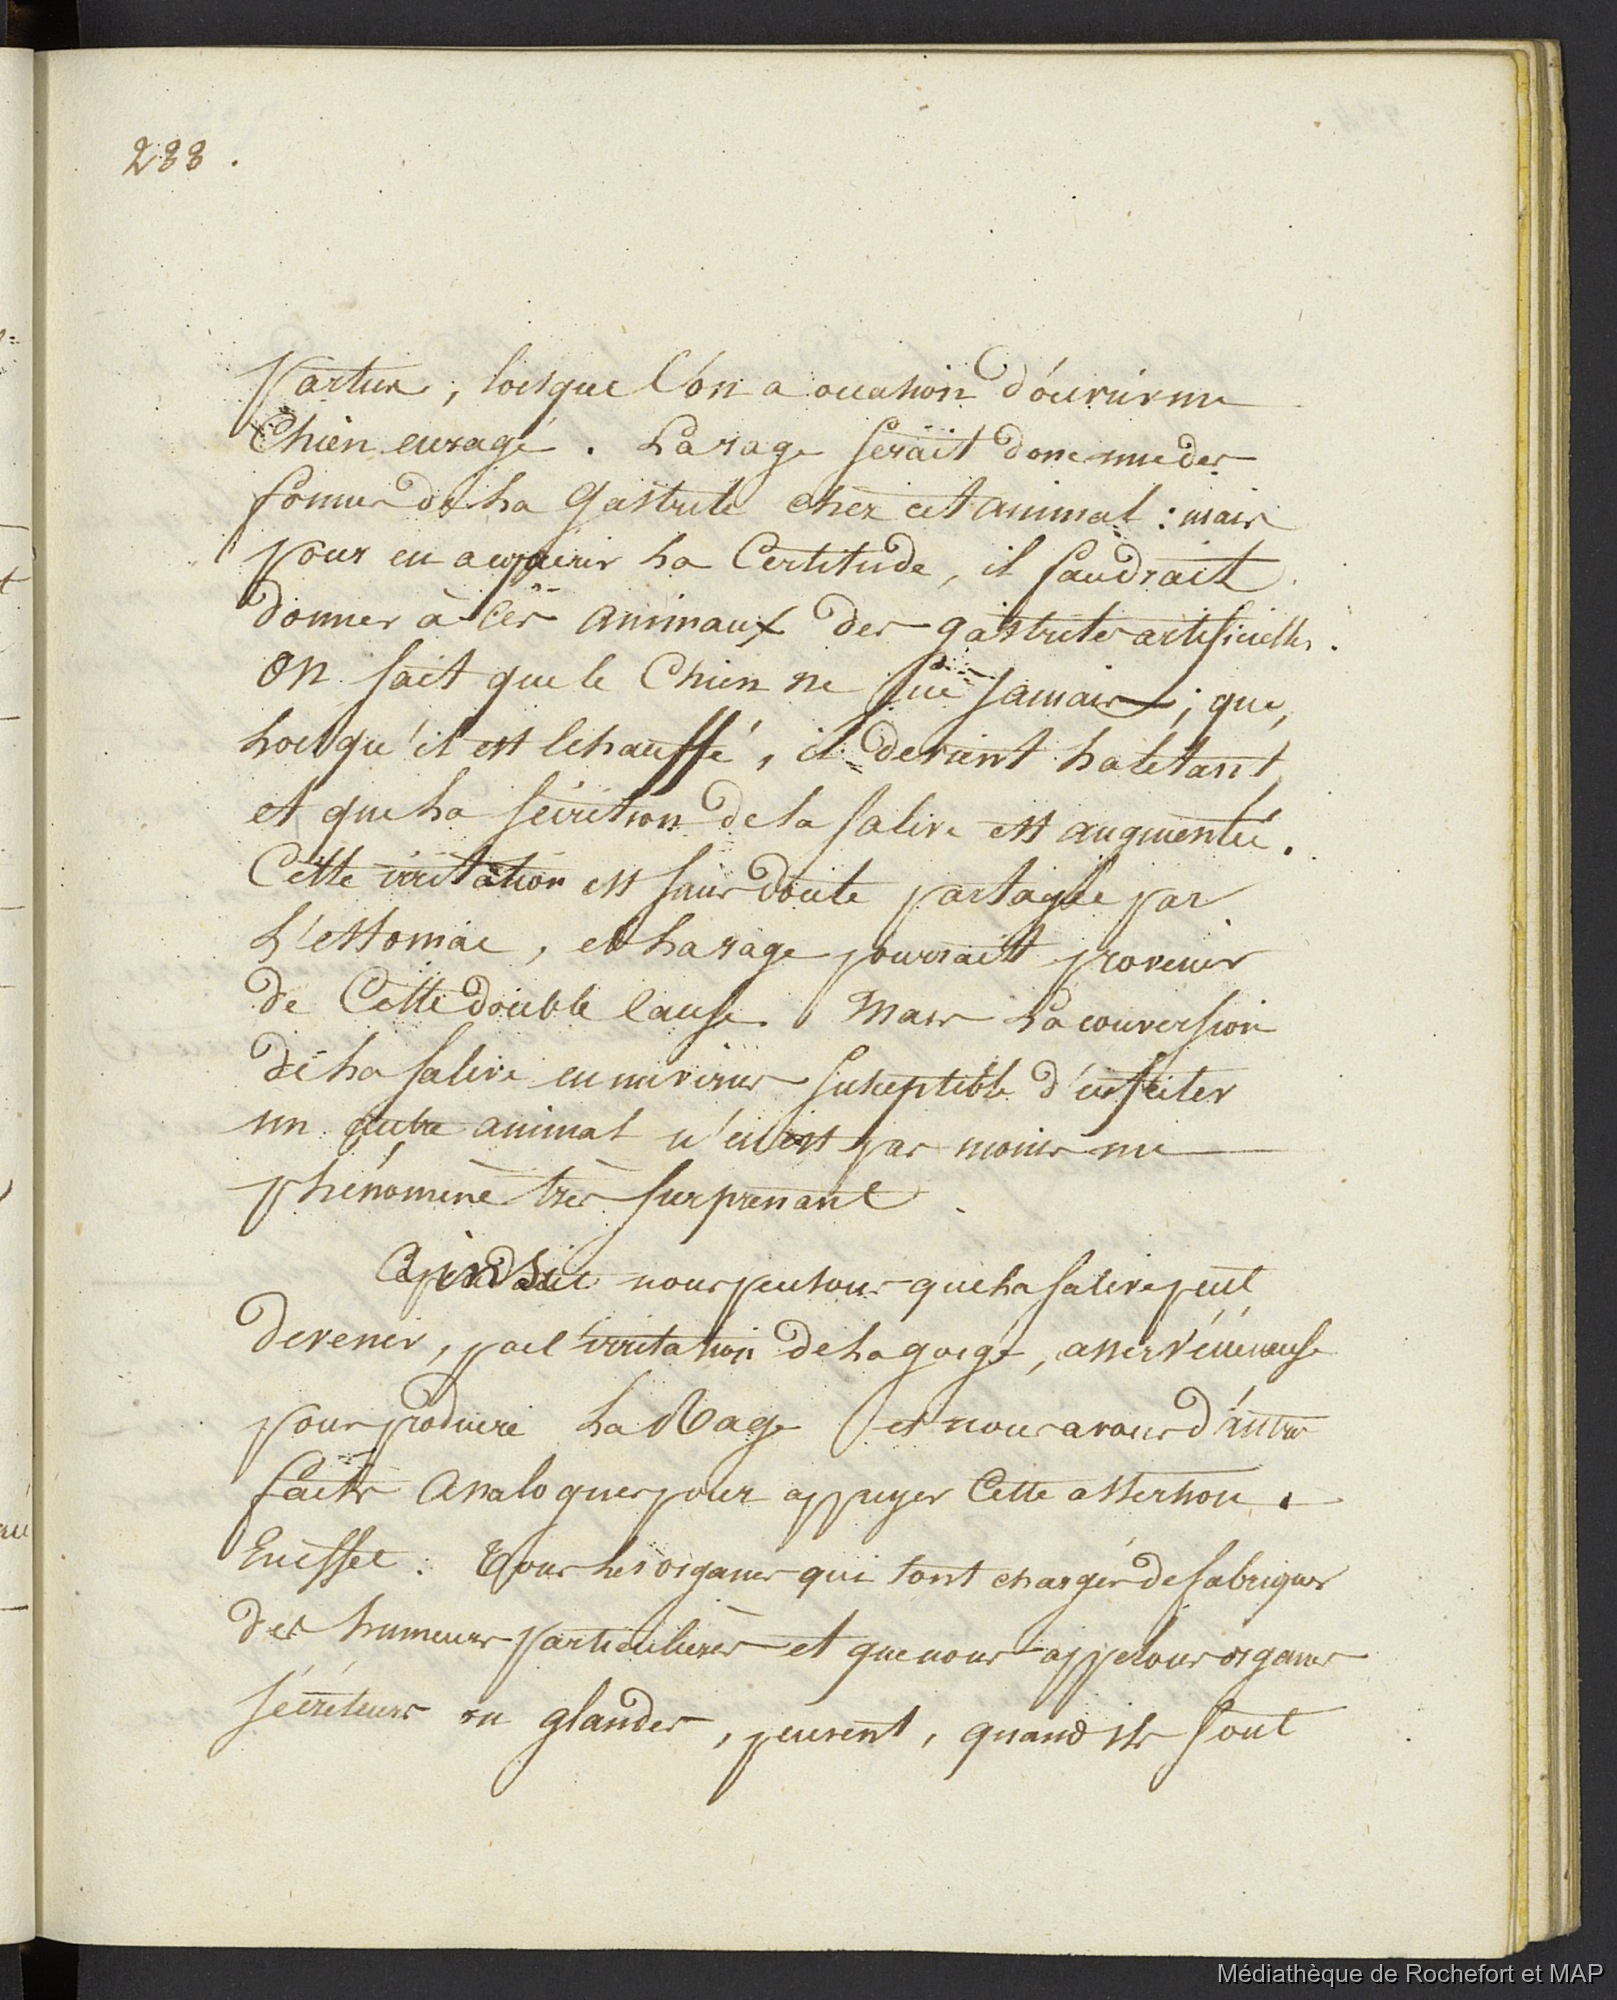 288.
parties, lorsque l'on a occasion d'ouvrir un
Chien enragé. La rage serait donc une des
formes de la gastrite chez cet animal : mais
pour en acquérir la Certitude, il faudrait
donner à ces animaux des gastrites artificielles.
On sait que le Chien ne sue jamais ; que,
lorsqu'il est échauffé, il devient haletant,
et que la sécrétion de la salive est augmentée.
Cette irritation est sans doute partagée par
L'estomac, et la rage pourrait provenir
de Cette double Cause. Mais La conversion
de la salive en un virus susceptible d'infecter
un autre animal n'en est pas moins un
phénomène très surprenant.
Ainsi nous pensons que la salive peut
devenir, par l'irritation de la gorge, assez vénéneuse
pour produire La Rage et nous avons d'autres
faits Analogues pour appuyer Cette assertion.
En effet : Tous les organes qui sont chargés de fabriquer
des humeurs particulières et que nous appelons organes
sécréteurs ou glandes, peuvent, quand ils sont
Médiathèque de Rochefort et MAP